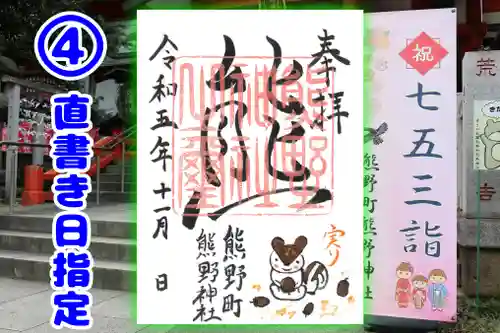 ④
直書き日指定
奉拝
令和五年十一月 日
熊野町
熊野神社
実り
祝
七五三詣
熊野町熊野神社